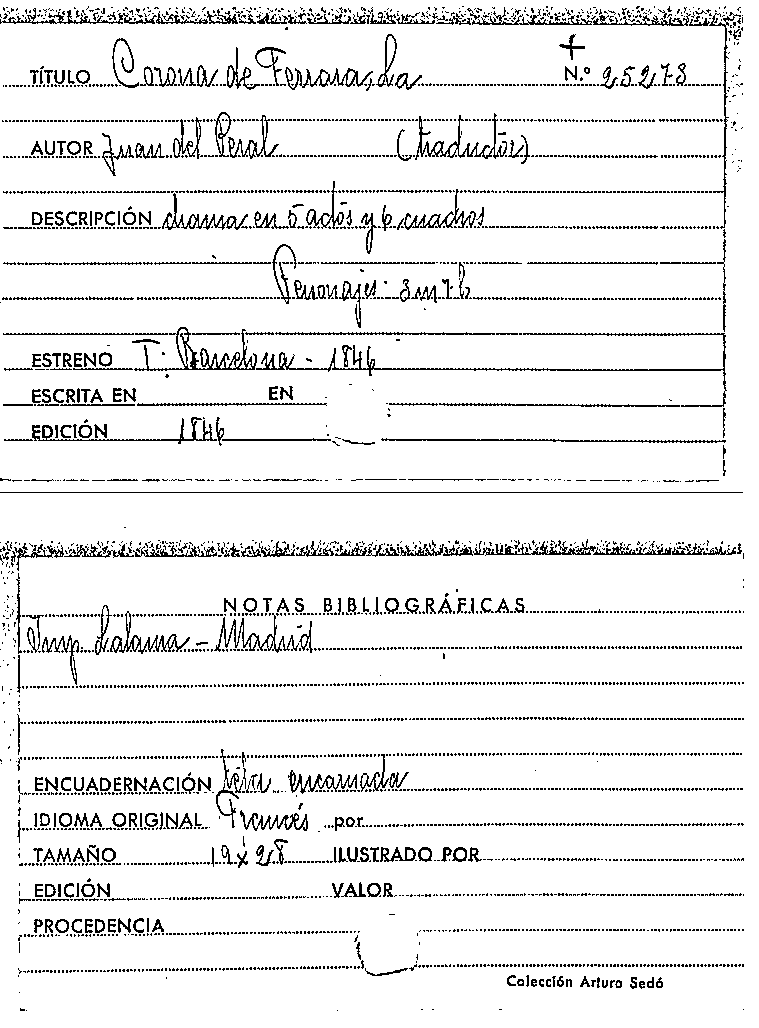 +
TÍTULO Corona de Ferrara, La N.º 25278
AUTOR Juan del Peral (traductor)
DESCRIPCIÓN drama en 5 actos y 6 cuadros
Personajes: 3 m 7 h
ESTRENO T. Barcelona - 1846
ESCRITA EN EN
EDICIÓN 1846
NOTAS BIBLIOGRÁFICAS
Imp. Lalama - Madrid
ENCUADERNACIÓN tela encarnada
IDIOMA ORIGINAL Francés por
TAMAÑO 19 x 28 ILUSTRADO POR
EDICIÓN VALOR
PROCEDENCIA
Colección Arturo Sedó